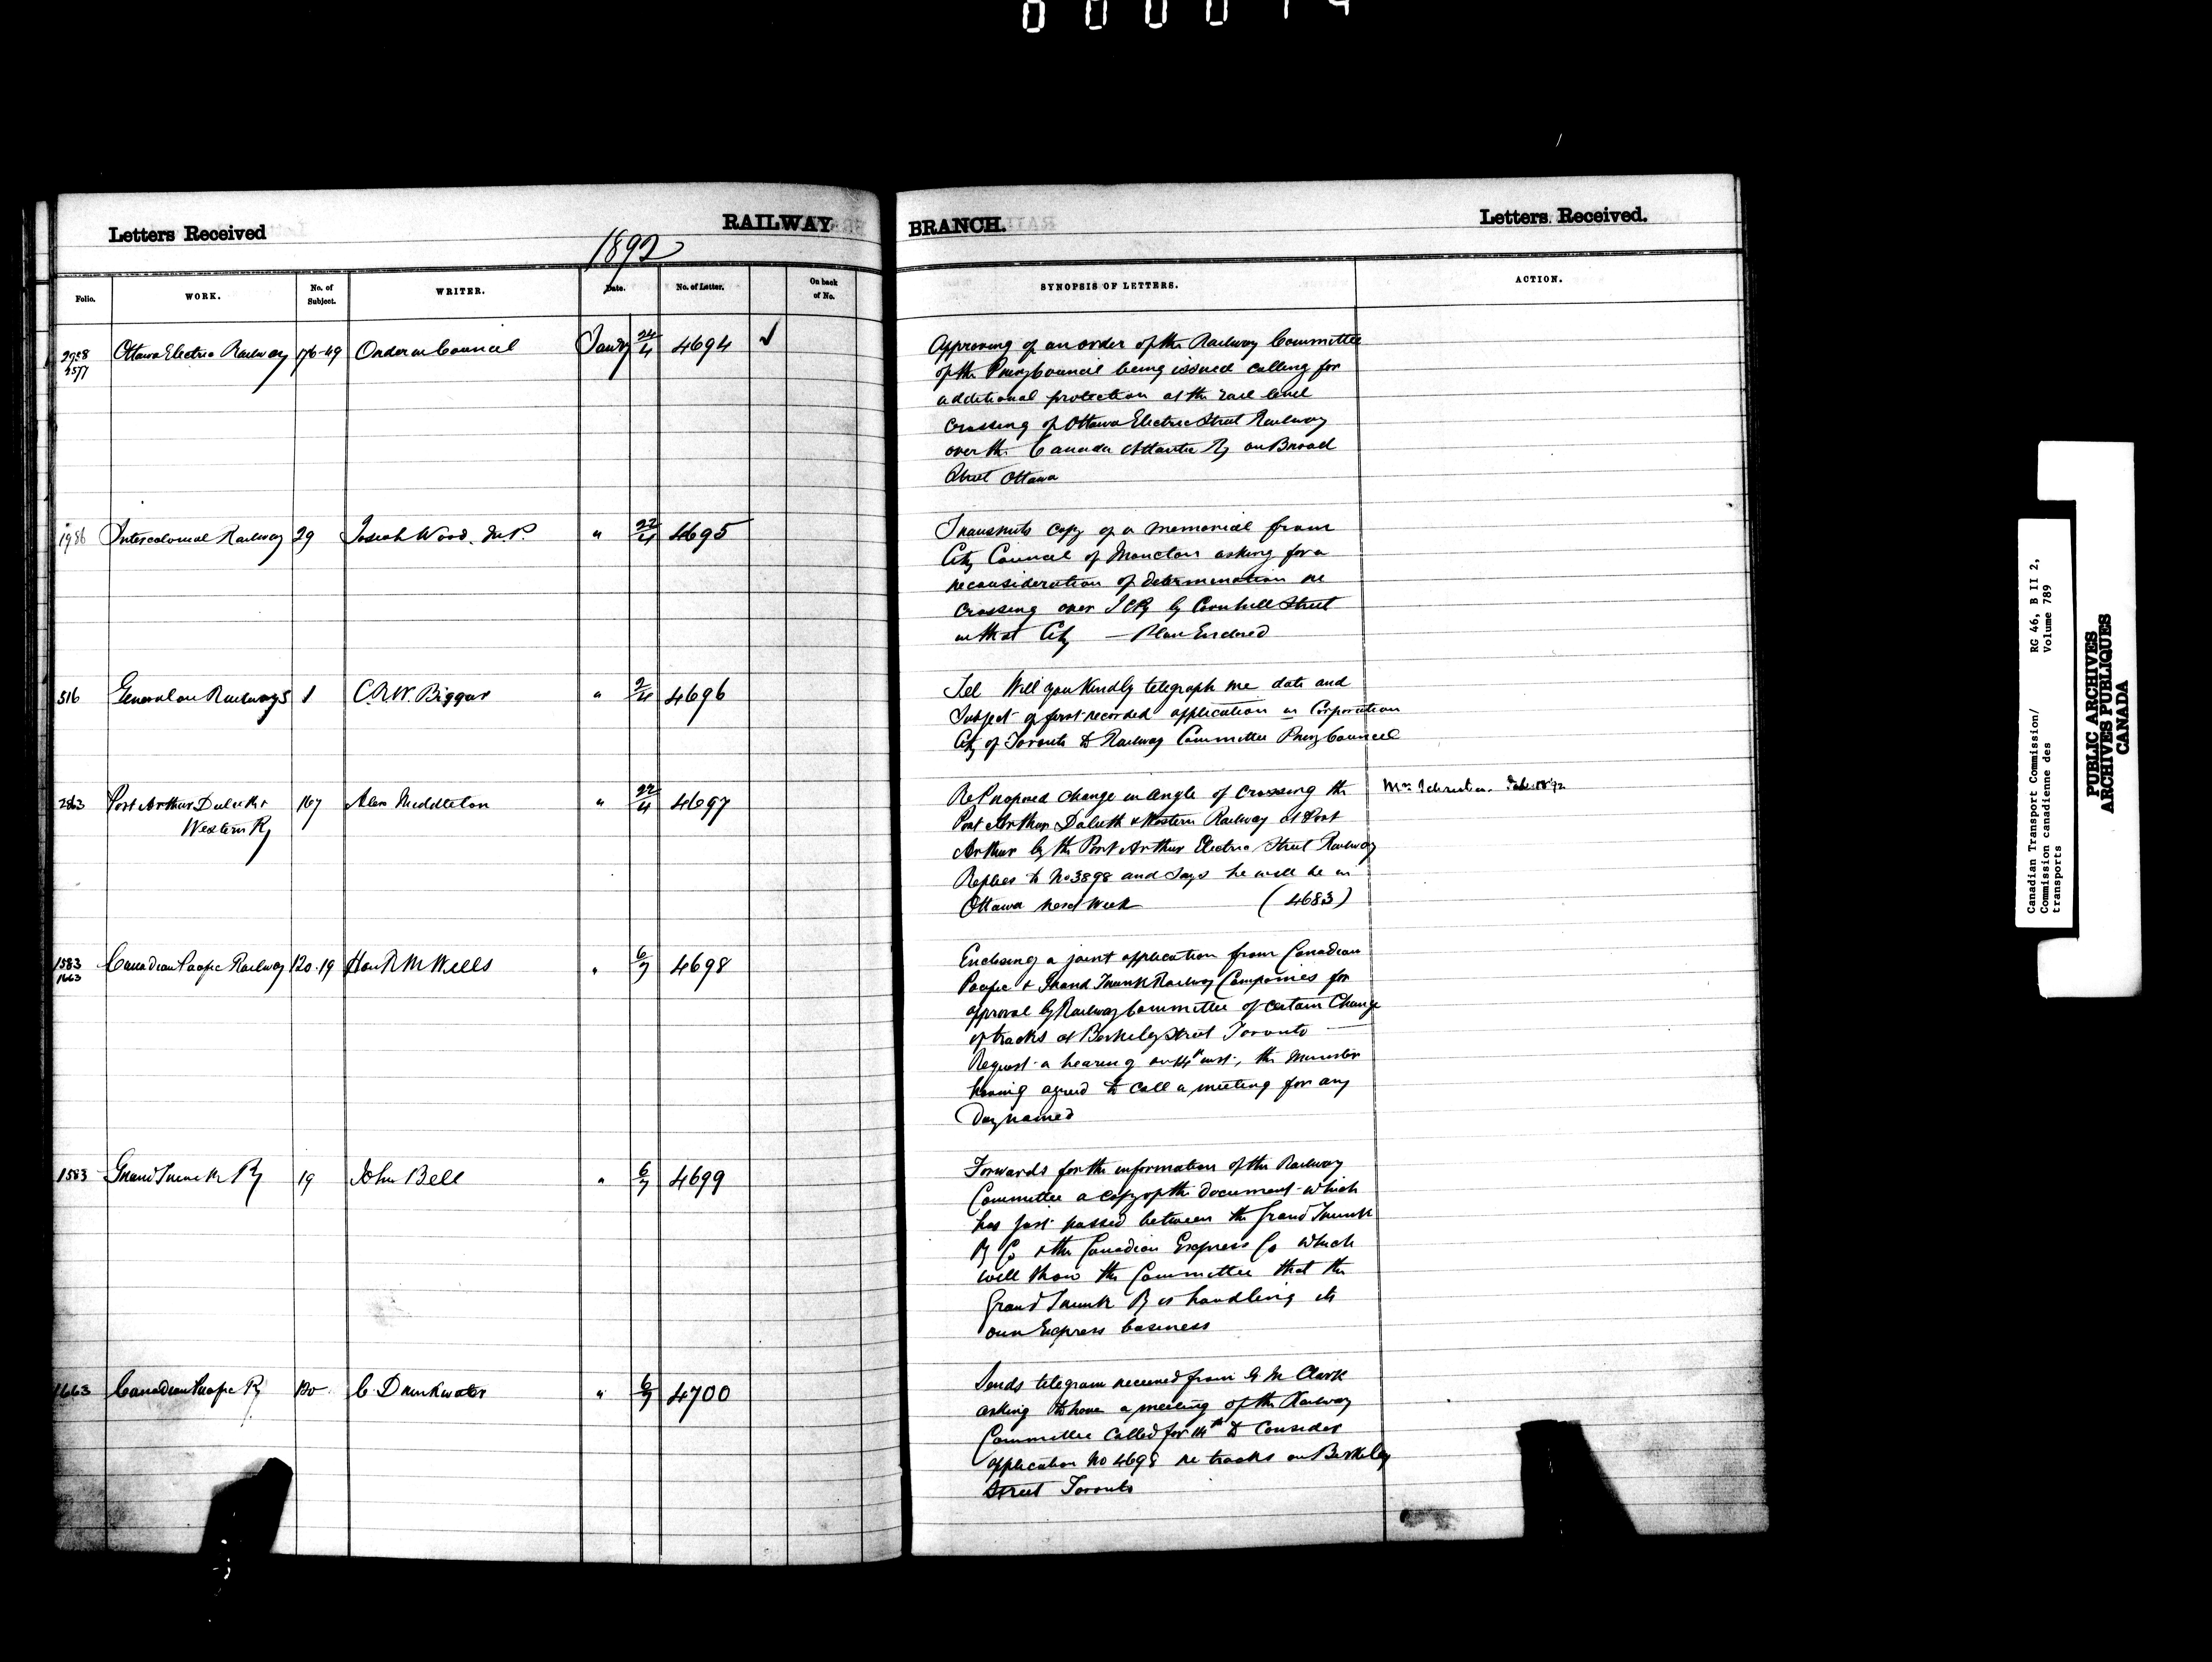 Letters Received
RAILWAY
BRANCH.
Letters Received.
1892
Folio.
WORK.
No. of Subject.
WRITER.
Date.
No. of Letter.
On back of No.
SYNOPSIS OF LETTERS.
ACTION.
2958 Ottawa Electric Railway 176-49 Order in Council Jany 4694
Approving of an order of the Railway Committee
of the Privy Council being issued calling for
additional protection at the rail level
crossing of Ottawa Electric Street Railway
over the Canada Atlantic Ry on Broad
Street Ottawa
1986 Intercolonial Railway 29 Josiah Wood. M.P. " 22/4 4695
Transmits copy of a memorial from
City Council of Moncton asking for a
reconsideration of determination re
crossing over ICRy by Cornhill Street
in that City — Plan Enclosed
516 General on Railways 1 C.R.W. Biggar " 2/4 4696
Tel Will you kindly telegraph me date and
Subject of first recorded application in Corporation
City of Toronto to Railway Committee Privy Council
2863 Port Arthur Duluth + 167 Alex Middleton " 22/4 4697
Western Ry
Re Proposed change in angle of crossing the
Port Arthur Duluth & Western Railway at Port
Arthur by the Port Arthur Electric Street Railway
Replies to No 3898 and Says he will be in
Ottawa next Week (4683)
Mr. Schreiber.
1583 Canadian Pacific Railway 120.19 Hon R M Wells " 6/7 4698
1663
Enclosing a joint application from Canadian
Pacific + Grand Trunk Railway Companies for
approval by Railway Committee of certain Change
of tracks at Berkeley Street Toronto —
Request a hearing on 14th inst., the Minister
having agreed to call a meeting for any
Day named
1583 Grand Trunk Ry 19 John Bell " 6/7 4699
Forwards for the information of the Railway
Committee a copy of the document which
has just passed between the Grand Trunk
Ry Co + the Canadian Express Co which
will show the Committee that the
Grand Trunk Ry is handling its
own Express business
1663 Canadian Pacific Ry 120 C. Drinkwater " 6/7 4700
Sends telegram received from G M Clark
asking to have a meeting of the Railway
Committee called for 14th to consider
application No 4698 re tracks on Berkeley
Street Toronto
Canadian Transport Commission/
Commission canadienne des
transports
RG 46, B II 2,
Volume 789
PUBLIC ARCHIVES
ARCHIVES PUBLIQUES
CANADA